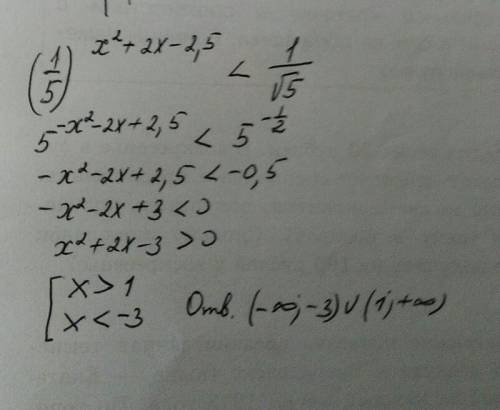 (1/5)^(x²+2x-2,5) < 1/√5
5^(-x²-2x+2,5) < 5^(-1/2)
-x²-2x+2,5 < -0,5
-x²-2x+3 < 0
x²+2x-3 > 0
[ x > 1
x < -3 Отв. (-∞;-3)∪(1;+∞)